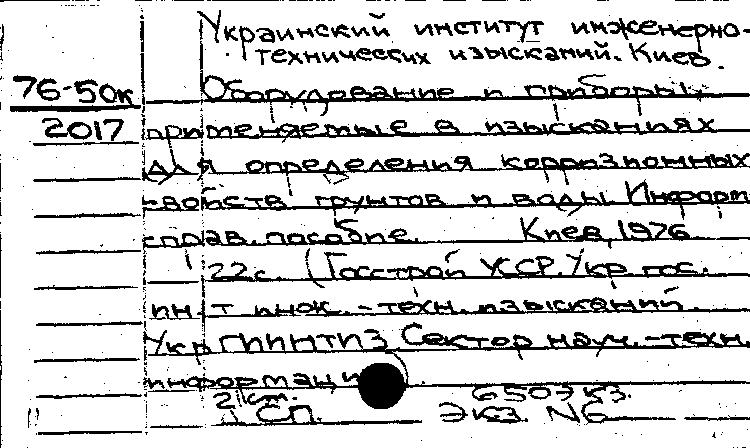 Украинский институт инженерно-
технических изысканий. Киев.
76-50к
Оборудование и приборы,
2017
применяемые в изысканиях
для определения коррозионных
свойств грунтов и воды. Информ.
справ. пособие. Киев, 1976
22с. (Госстрой УССР. Укр. гос.
ин-т инж.-техн. изысканий.
УкрГИИНТИЗ Сектор науч.-техн.
информаци
650 экз.
СП. Экз. №6